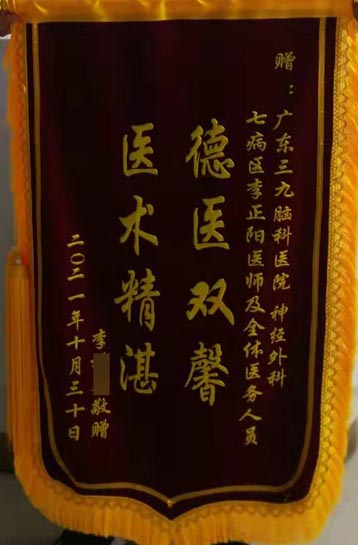 赠：广东三九脑科医院 神经外科
七病区李正阳医师及全体医务人员
德医双馨
医术精湛
李 敬赠
二〇二一年十月三十日